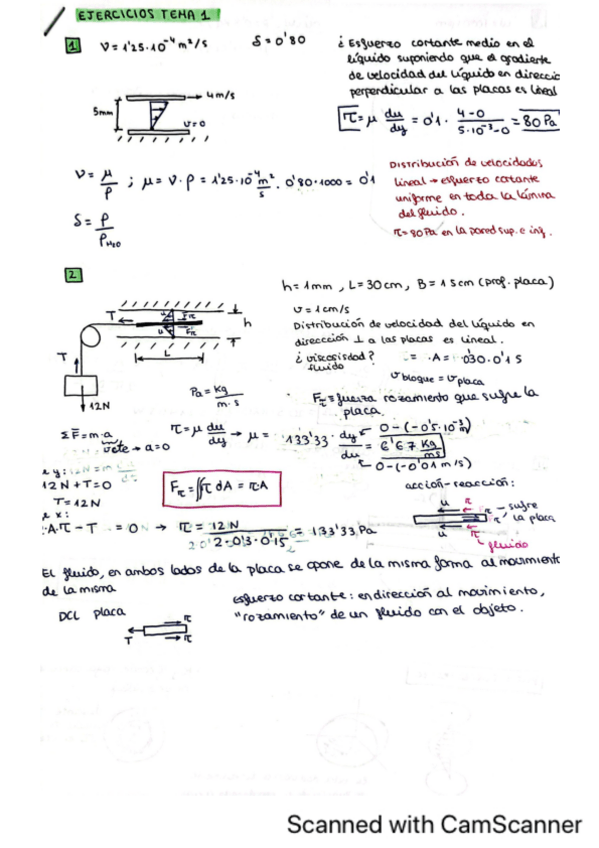 EJERCICIOS TEMA 1
1 ν = 1'25·10⁻⁴ m²/s S = 0'80
¿Esfuerzo cortante medio en el
líquido suponiendo que el gradiente
de velocidad del líquido en direcció
perpendicular a las placas es lineal
4m/s
5mm
v=0
τ = μ du/dy = 0'1 · (4-0)/(5·10⁻³-0) = 80 Pa
ν = μ/ρ ; μ = ν·ρ = 1'25·10⁻⁴ m²/s · 0'80·1000 = 0'1
S = ρ/ρH₂O
Distribución de velocidades
lineal → esfuerzo cortante
uniforme en toda la lámina
del fluido.
τ = 80 Pa en la pared sup. e inf.
2
h = 1mm, L = 30cm, B = 15cm (prof. placa)
v = 1cm/s
Distribución de velocidad del líquido en
dirección ⊥ a las placas es lineal.
¿viscosidad? = ·A = 030·0'15
fluido
v bloque = v placa
T
u
Fτ
u
Fτ
h
L
T
12N
Pa = kg/m·s
Fτ = fuerza rozamiento que sufre la
placa.
ΣF = m·a
v cte → a=0
τ = μ du/dy → μ = 133'33 · dy/du = 6'67 kg/ms
0-(-0'5·10⁻³m)
0-(-0'01 m/s)
12N + T = 0
T = 12N
Fτ = ∬τ dA = τ·A
acción-reacción:
u
τ
sufre
la placa
u
τ
fluido
·A·τ - T = 0 → τ = 12N/(2·0'3·0'15) = 133'33 Pa
El fluido, en ambos lados de la placa se opone de la misma forma al movimiento
de la misma
DCL placa
T
τ
τ
esfuerzo cortante: en dirección al movimiento,
"rozamiento" de un fluido con el objeto.
Scanned with CamScanner